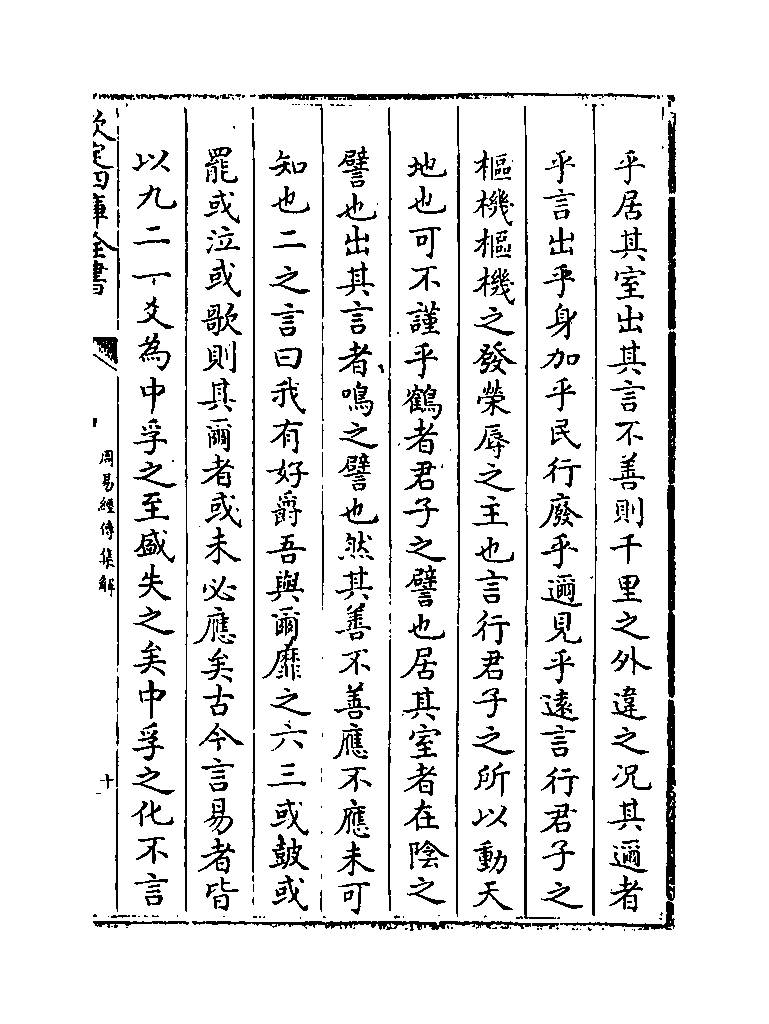 乎居其室出其言不善則千里之外違之况其邇者
乎言出乎身加乎民行廢乎邇見乎遠言行君子之
樞機樞機之發榮辱之主也言行君子之所以動天
地也可不謹乎鶴者君子之譬也居其室者在陰之
譬也出其言者鳴之譬也然其善不善應不應未可
知也二之言曰我有好爵吾與爾靡之六三或鼓或
罷或泣或歌則其爾者或未必應矣古今言易者皆
以九二一爻為中孚之至盛失之矣中孚之化不言
欽定四庫全書
周易經傳集解
十